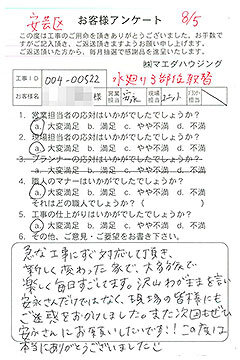 安芸区 お客様アンケート 8/5
この度は工事のご用命を頂きありがとうございました。お手数で
すがご記入頂き、ご返送頂きますようお願い申し上げます。
ご返送頂いた方から、毎月抽選で感謝品を進呈いたします。
㈱マエダハウジング
工事ID 004-00522 水廻り3部位取替
お客様名 様 営業担当 安永 現場担当 ユニット プランナー担当
1. 営業担当者の応対はいかがでしたでしょうか?
a. 大変満足 b. 満足 c. やや不満 d. 不満
2. 現場担当者の応対はいかがでしたでしょうか?
a. 大変満足 b. 満足 c. やや不満 d. 不満
3. プランナーの応対はいかがでしたでしょうか?
a. 大変満足 b. 満足 c. やや不満 d. 不満
4. 職人のマナーはいかがでしたでしょうか?
a. 大変満足 b. 満足 c. やや不満 d. 不満
それはどの職人でしょうか? ( )
5. 工事の仕上がりはいかがでしたでしょうか?
a. 大変満足 b. 満足 c. やや不満 d. 不満
6. その他、ご意見・ご要望をお書き下さい。
急な工事にすぐ対応して頂き、
新しく変わった家で、大喜びで
楽しく毎日すごしてます。沢山わがままを言い
安永さんだけではなく、現場の皆様にも
ご迷惑をおかけしました。また次回もぜひ
安永さんにお買いしたいです!この度は
本当にありがとうございました